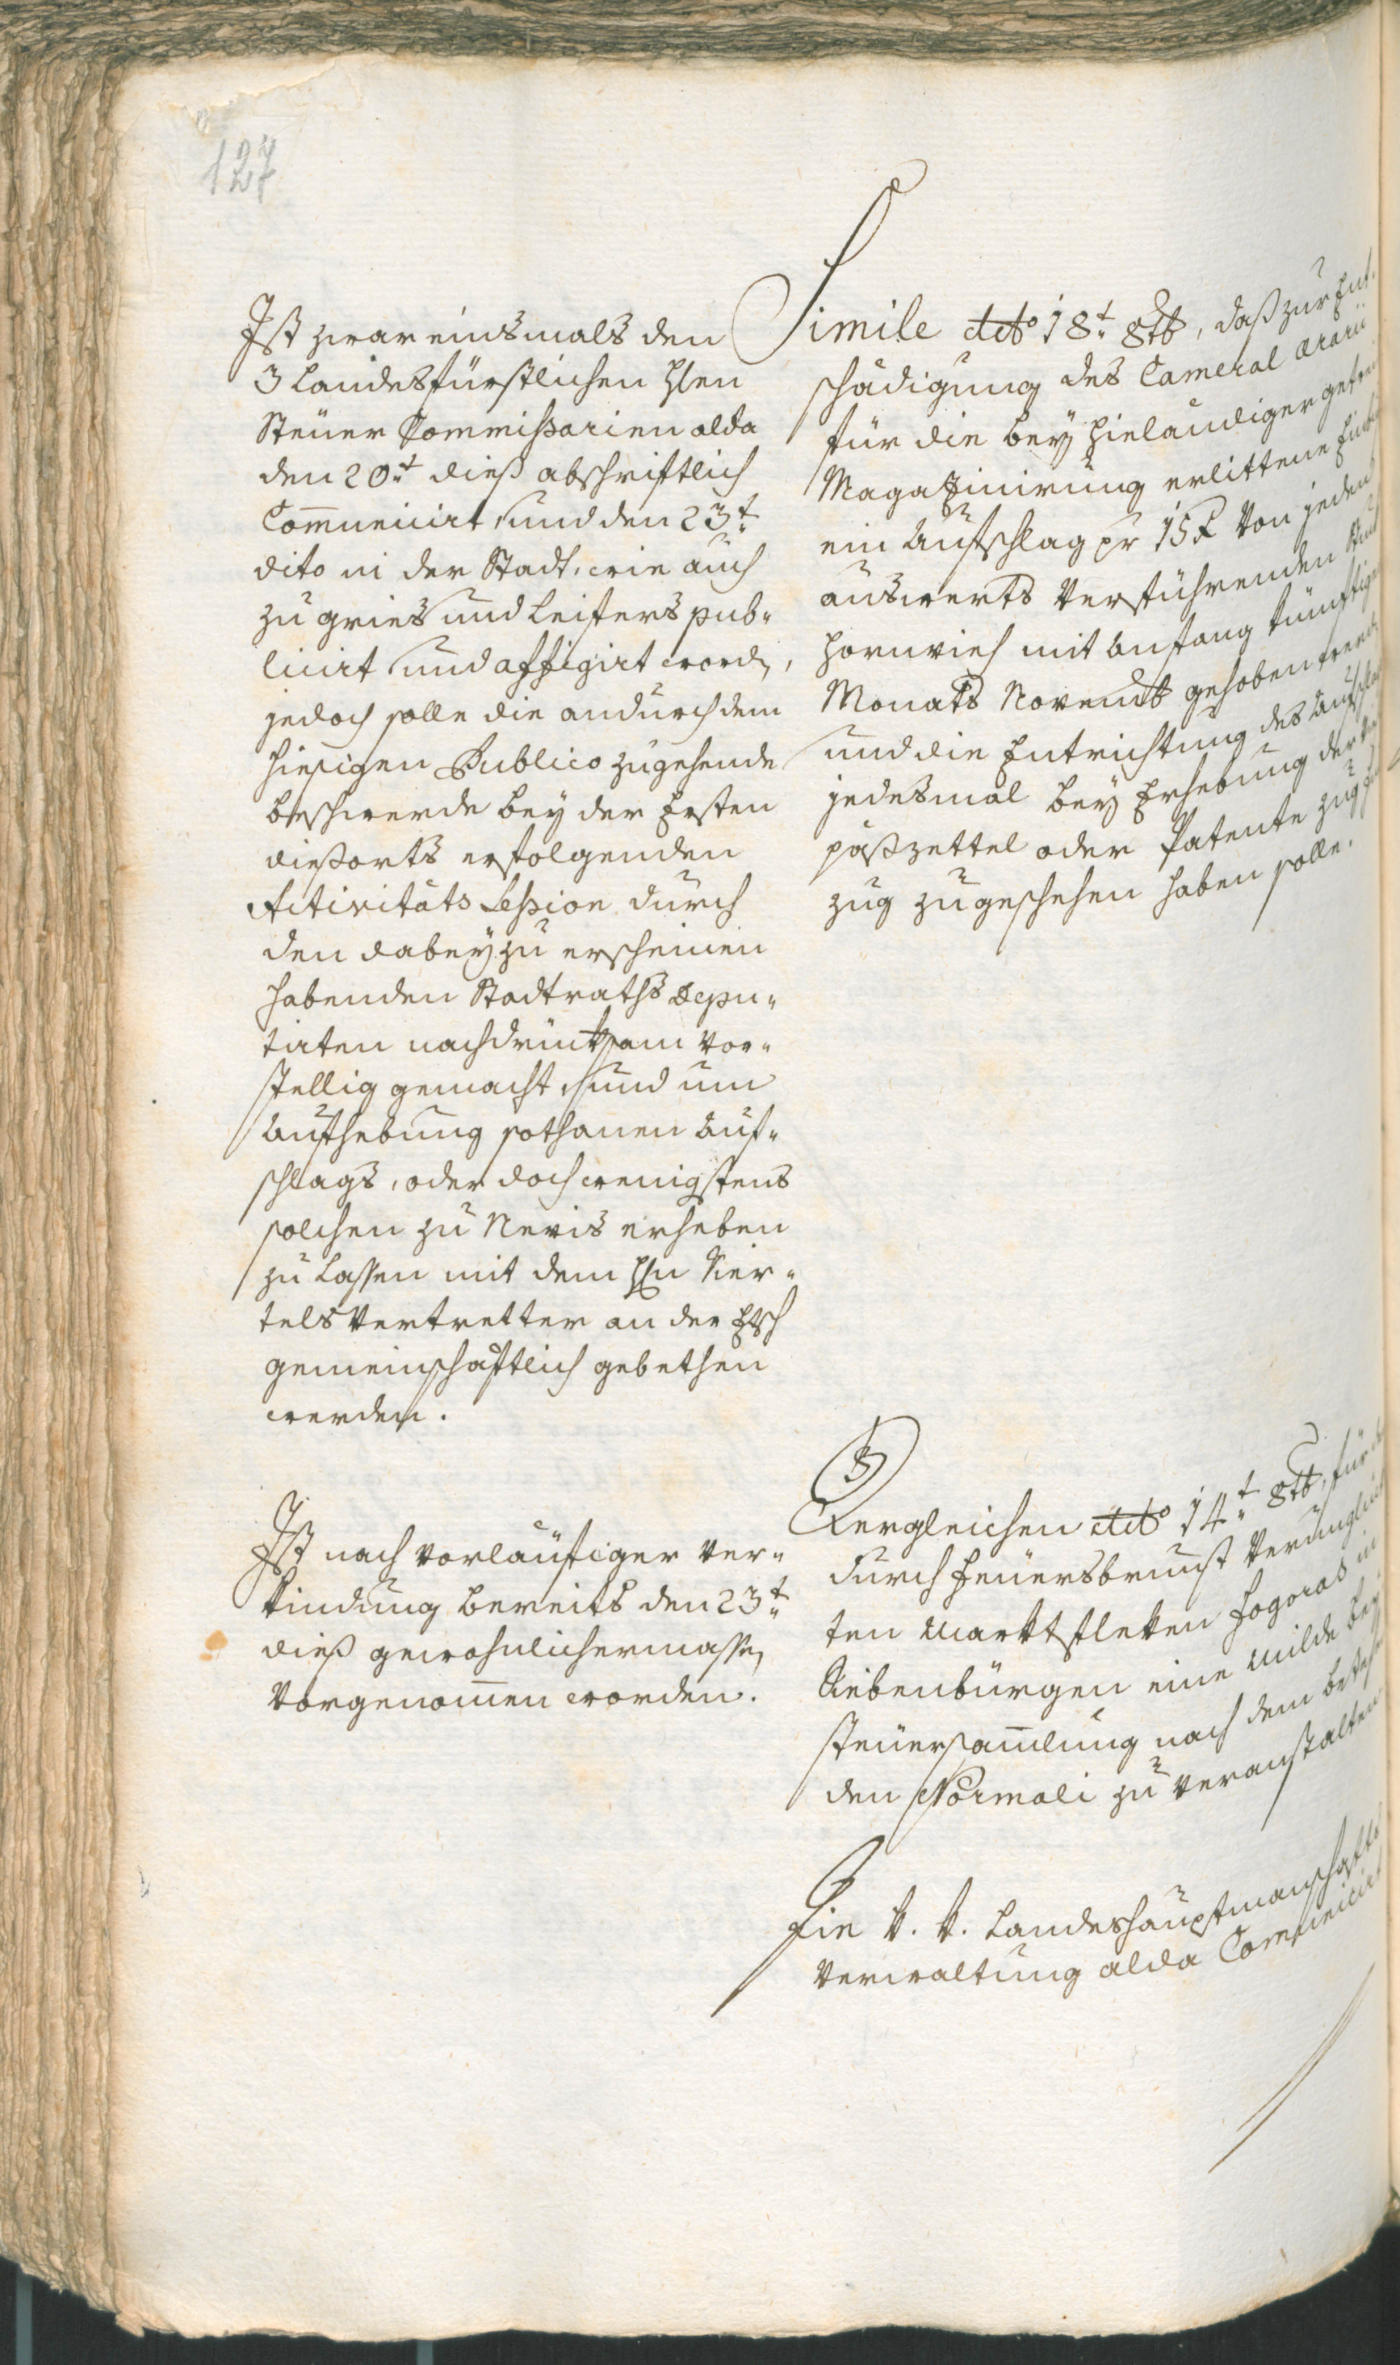 127
Ist zwar einsmals den
3 Landesfürstlichen H̄len
Steüer Commissarien alda
den 20t dieß abschriftlich
Com̄unicirt, und den 23t
dito in der Stadt, wie auch
zu gries und Leifers pub-
licirt und affigirt word,
jedoch solle die andurch dem
hiesigen Publico zugehende
beschwerde bey der Ersten
dießorts erfolgenden
Activitäts Session durch
den dabey zu erscheinen
habenden Stadtraths Depu-
tirten nachdrüksam vor-
stellig gemacht, und um
Aufhebung sothanen auf-
schlags, oder doch wenigstens
solchen zu Nevis erheben
zu Lassen mit dem Hn Vier-
tels Vertretter an der Etsch
gemeinschaftlich gebethen
werden.
Ist nach vorläufiger Ver-
kündung bereits den 23t
dieß gewohnlichermassen
vorgenom̄en worden.
Simile dtto 18t 8tb, daß zur Ent-
schädigung des Cameral ærarii
für die bey hieländiger getreid
Magazinirung erlittene
ein Aufschlag pr 15 x von jeden
auswerts verführenden Stuk
hornvieh mit anfang künftigen
Monats Novemb gehoben werden
und die Entrichtung des Aufschlags
jedesmal bey Erhebung der
paßzettel oder Patente zug für
zug zugeschehen haben solle.
Dergleichen dtto 14t 8tb, für
durch feüersbrunst Verunglük
ten Marktfleken Fogoras in
Siebenbürgen eine milde bey
steüersam̄lung nach dem bestehen
den Normali zu veranstalten.
Die k. k. Landeshauptmanschafts
Verwaltung alda Com̄unicirt